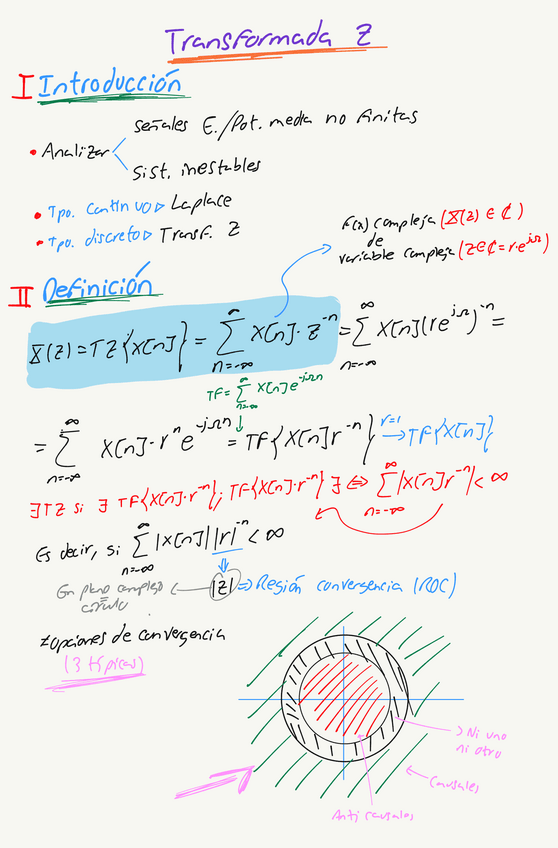 Transformada Z
I Introducción
señales E./Pot. media no finitas
• Analizar
Sist. inestables
• Tpo. continuo ▷ Laplace
• Tpo. discreto ▷ Transf. Z
f(x) compleja (X(z) ∈ ℂ)
de
variable compleja (z∈ℂ = r·e^{jΩ})
II Definición
X(z) = TZ{x[n]} = ∑_{n=-∞}^{∞} x[n]·z^{-n} = ∑_{n=-∞}^{∞} x[n](re^{jΩ})^{-n} =
TF = ∑_{n=-∞}^{∞} x[n]e^{-jΩn}
= ∑_{n=-∞}^{∞} x[n]·r^{n} e^{-jΩn} = TF{x[n]r^{-n}} r=1 → TF{x[n]}
∃TZ si ∃ TF{x[n]·r^{-n}}; TF{x[n]·r^{-n}} ∃ ⇔ ∑_{n=-∞}^{∞} |x[n]r^{-n}| < ∞
Es decir, si ∑_{n=-∞}^{∞} |x[n]||r|^{-n} < ∞
En plano complejo ← |z| ⇒ Región convergencia (ROC)
≡ círculo
≠ opciones de convergencia
(3 típicas)
→ Ni uno
ni otro
← Causales
Anti causales